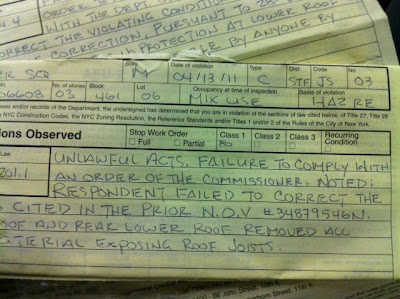 4.4
WITH THE DEPT
CORRECT THE VIOLATING CONDITIONS
CORRECTION. PURSUANT TO 28-
PROTECTION AT LOWER ROOF
BY ANYONE BY
ER SQ M 04/13/11 C STF JS 03
No. of stories Block Lot Occupancy at time of inspection Basis of violation
06608 03 461 06 MIX USE HAZ RE
Date of violation Type Dist. Code No
uses and/or records of the Department, the undersigned has determined that you are in violation of the sections of law cited below; of Title 27, Title 28
NYC Construction Codes, the NYC Zoning Resolution, the Reference Standards and/or Titles 1 and/or 2 of the Rules of the City of New York.
ons Observed Stop Work Order Class 1 Class 2 Class 3 Recurring
Full Partial Condition
Law
201.1 UNLAWFUL ACTS. FAILURE TO COMPLY WITH
AN ORDER OF THE COMMISSIONER. NOTED:
RESPONDENT FAILED TO CORRECT THE
CITED IN THE PRIOR N.O.V #34879546N.
ROOF AND REAR LOWER ROOF REMOVED ALL
ATERIAL EXPOSING ROOF JOISTS.